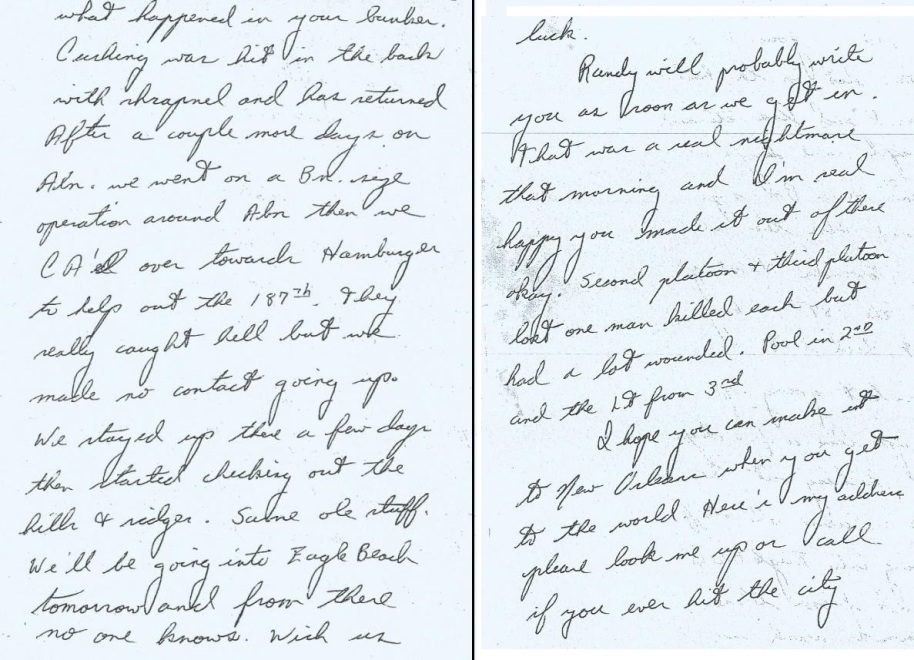 what happened in your bunker.
Cushing was hit in the back
with shrapnel and has returned
After a couple more days on
Abn. we went on a Bn. size
operation around Abn then we
CA'ed over towards Hamburger
to help out the 187th. They
really caught hell but we
made no contact going up.
We stayed up there a few days
then started checking out the
hills & ridges. Same ole stuff.
We'll be going into Eagle Beach
tomorrow and from there
no one knows. Wish us
luck.
Randy will probably write
you as soon as we get in.
That was a real nightmare
that morning and I'm real
happy you made it out of there
okay. Second platoon & third platoon
lost one man killed each but
had a lot wounded. Pool in 2nd
and the Lt from 3rd
I hope you can make it
to New Orleans when you get
to the world Here's my address
please look me up or call
if you ever hit the city